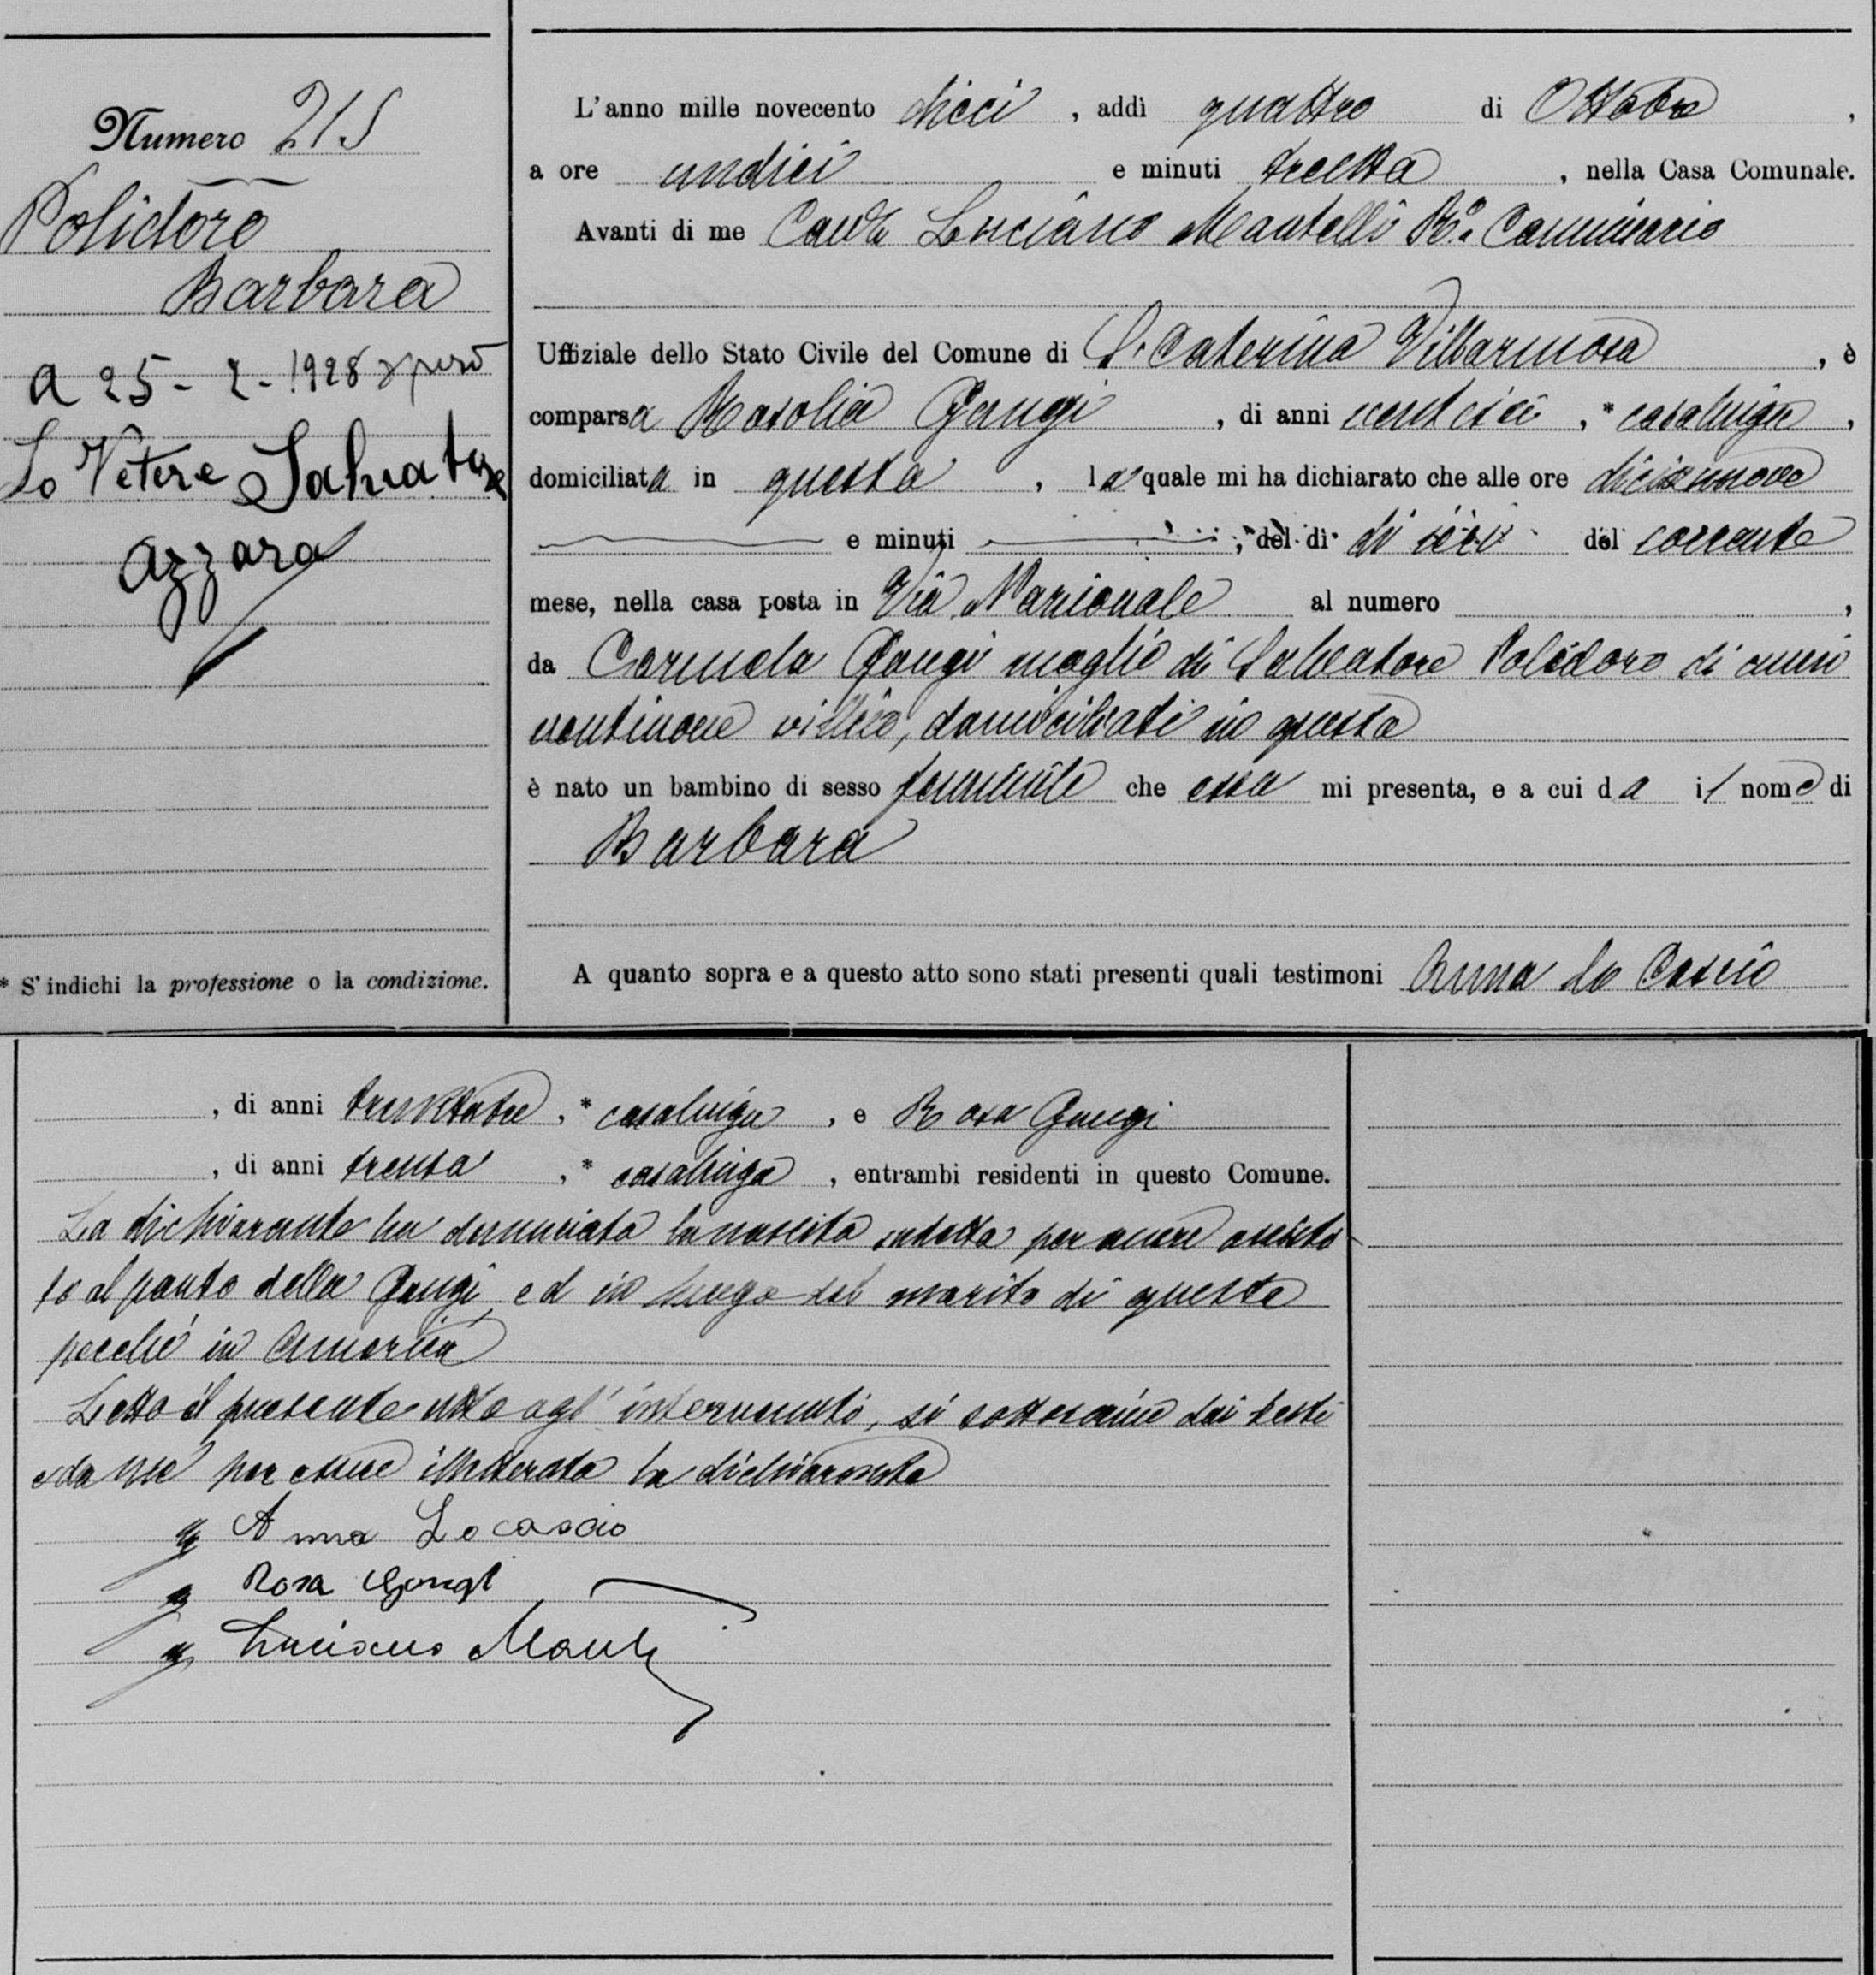 Numero 215
Polidoro
Barbara
A 25 - 2 - 1928 sposò
Lo Vetere Salvatore
Azzara
* S'indichi la professione o la condizione.
L'anno mille novecento dieci, addì quattro di Ottobre,
a ore undici e minuti trenta, nella Casa Comunale.
Avanti di me Luciano Mantelli R.o Commissario
Uffiziale dello Stato Civile del Comune di S. Caterina Villarmosa, è
comparsa Rosolia Gangi, di anni ventisei, * casalinga,
domiciliata in questa, la quale mi ha dichiarato che alle ore diciannove
e minuti, del dì del corrente
mese, nella casa posta in Via Nazionale al numero,
da Carmela Gangi moglie di Salvatore Polidoro di anni
ventinove villico, domiciliati in questa
è nato un bambino di sesso femminile che essa mi presenta, e a cui da il nome di
Barbara
A quanto sopra e a questo atto sono stati presenti quali testimoni Anna Lo Cascio
, di anni trentatre, * casalinga, e Rosa Gangi
, di anni trenta, * casalinga, entrambi residenti in questo Comune.
La dichiarante ha denunciato la nascita sudetta per avere assisti
to al parto della Gangi, ed in luogo del marito di questa
perchè in America
Letto il presente atto agl'intervenuti, si sottoscrive dai testi
e da me per essere illetterata la dichiarante
Anna Locascio
Rosa Gangi
Luciano Mantelli